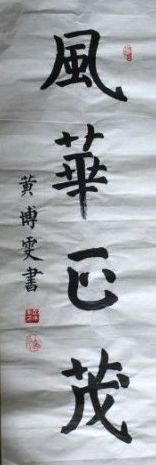 風華正茂
黃博雯書